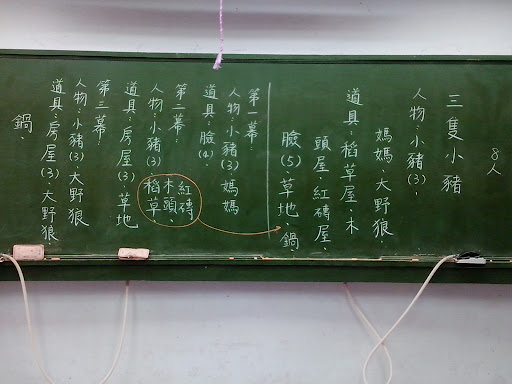 8人
三隻小豬
人物:小豬(3)、
媽媽、大野狼、
道具:稻草屋、木
頭屋、紅磚屋、
臉(5)、草地、鍋、
第一幕
人物:小豬(3)媽媽
道具:臉(4)、
第二幕:
人物:小豬(3)、
紅磚
木頭、
稻草
道具:房屋(3)、草地
第三幕:
人物:小豬(3)、大野狼
道具:房屋(3)、大野狼
鍋、